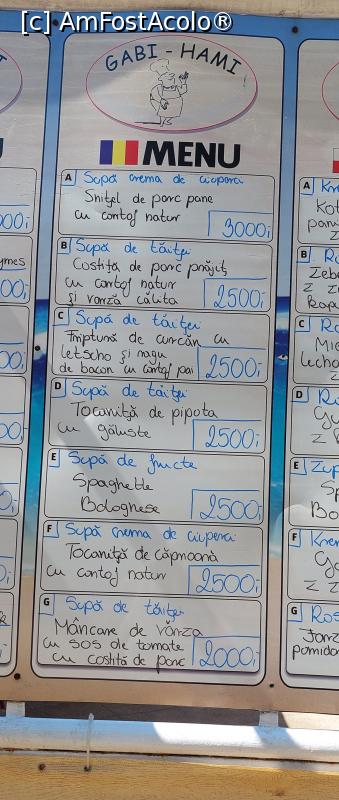 [c] AmFostAcolo®
GABI - HAMI
MENU
A Supă crema de ciuperci
Snițel de porc pane
cu cartof natur
3000,-
B Supă de tăiței
Costiță de porc prăjit
cu cartof natur
și varză călită
2500,-
C Supă de tăiței
Friptură de curcan cu
letscho și
de bacon cu cartof pai
2500,-
D Supă de tăiței
Tocaniță de pipota
cu găluste
2500,-
E Supă de fructe
Spaghette
Bolognese
2500,-
F Supă crema de ciuperci
Tocaniță de căprioară
cu cartof natur
2500,-
G Supă de tăiței
Mâncare de vărza
cu sos de tomate
cu costită de porc
2000,-
A
B
C
D
E
F
G